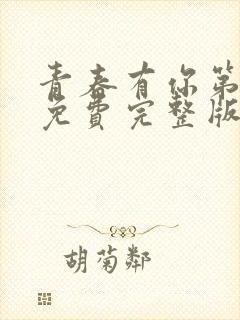 青春有你第
免費完整版
胡菊鄰